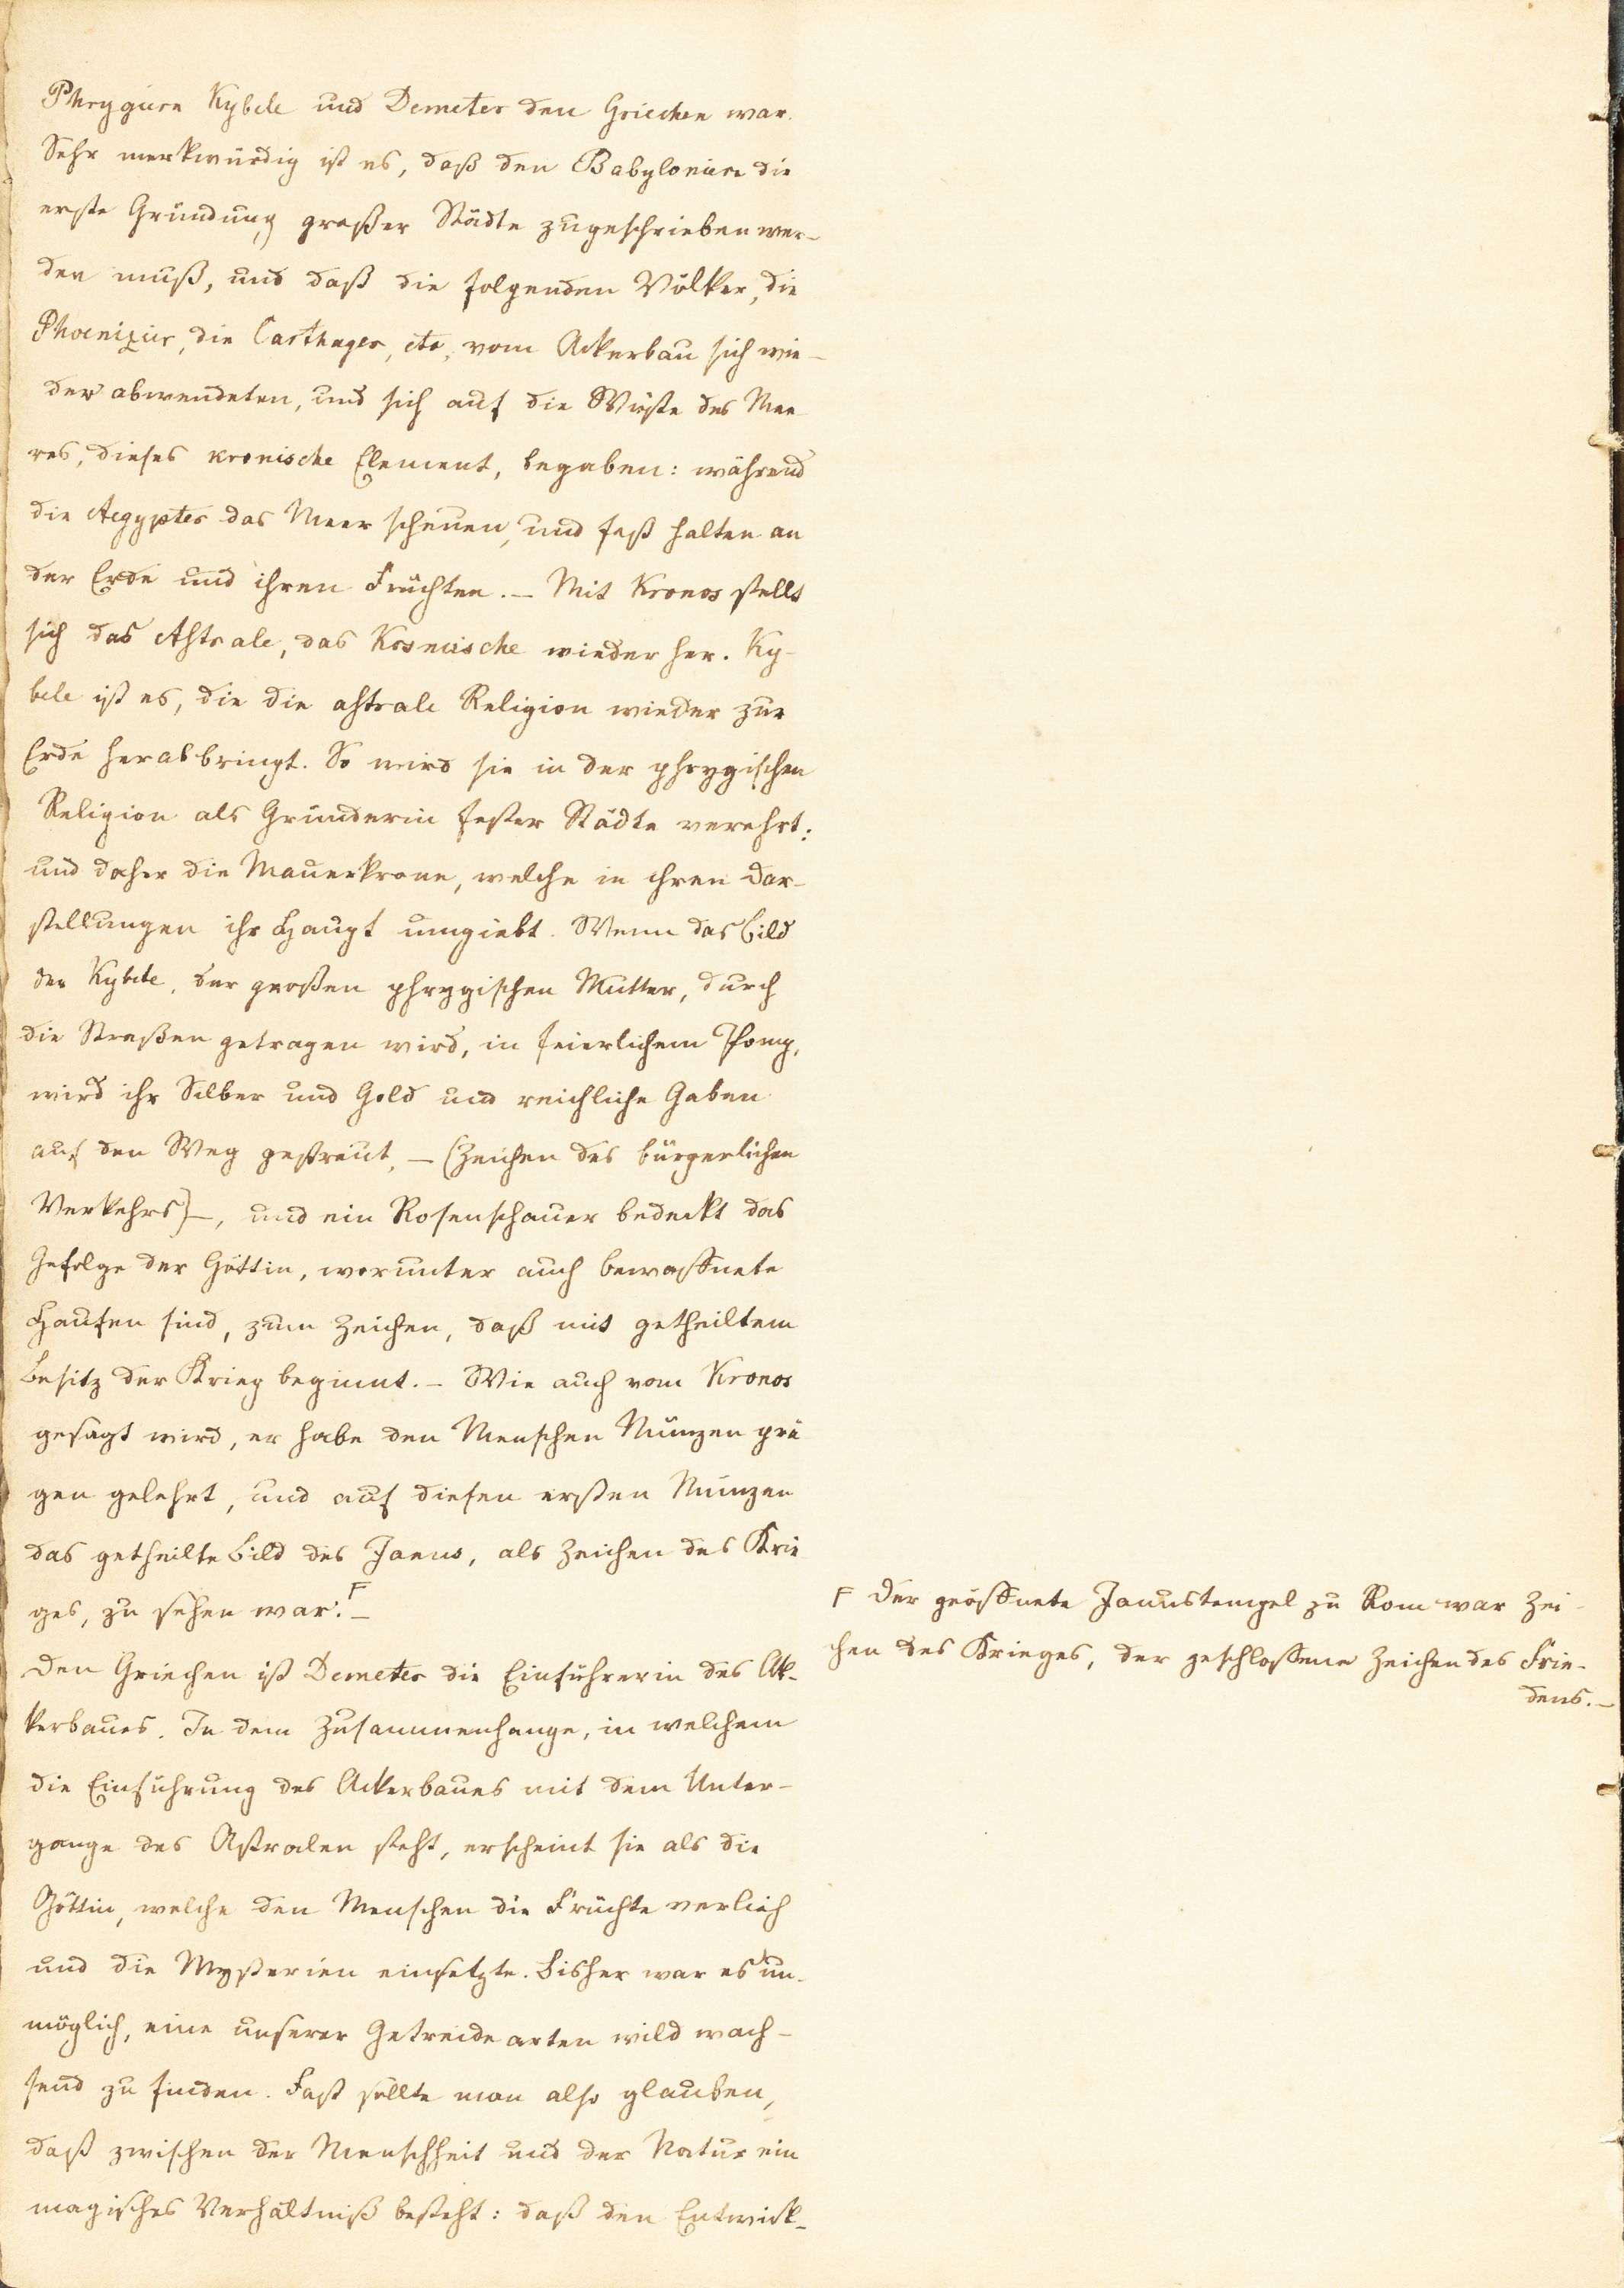 Phrygiern Kybele und Demeter den Griechen war.
Sehr merkwürdig ist es, daß den Babyloniern die
erste Gründung großer Städte zugeschrieben wer-
den muß, und daß die folgenden Völker, die
Phoenizier, die Carthager, etc, vom Ackerbau sich wie-
der abwendeten, und sich auf die Wüste des Mee
res, dieses kronische Element, begaben: während
die Aegypter das Meer scheuen, und fest halten an
der Erde und ihren Früchten. – Mit Kronos stellt
sich das Astrale, das Kosmische wieder her. Ky-
bele ist es, die die astrale Religion wieder zur
Erde herabbringt. So wird sie in der phrygischen
Religion als Gründerin fester Städte verehrt:
und daher die Mauerkrone, welche in ihren Dar-
stellungen ihr Haupt umgiebt. Wenn das Bild
der Kybele, der großen phrygischen Mutter, durch
die Straßen getragen wird, in feierlichem Pomp,
wird ihr Silber und Gold und reichliche Gaben
auf den Weg gestreut, – (Zeichen des bürgerlichen
Verkehrs) –, und ein Rosenschauer bedeckt das
Gefolge der Göttin, worunter auch bewaffnete
Haufen sind, zum Zeichen, daß mit getheiltem
Besitz der Krieg beginnt. – Wie auch vom Kronos
gesagt wird, er habe den Menschen Münzen prä
gen gelehrt, und auf diesen ersten Münzen
das getheilte Bild des Janus, als Zeichen des Krie
ges, zu sehen war. F –
Den Griechen ist Demeter die Einführerin des Ak-
kerbaues. In dem Zusammenhange, in welchem
die Einführung des Ackerbaues mit dem Unter-
gange des Astralen steht, erscheint sie als die
Göttin, welche den Menschen die Früchte verlieh
und die Mysterien einsetzte. Bisher war es un-
möglich, eine unserer Getreidearten wild wach-
send zu finden. Fast sollte man also glauben,
daß zwischen der Menschheit und der Natur ein
magisches Verhältniß besteht: daß den Entwick-
F Der geöffnete Janustempel zu Rom war Zei-
chen des Krieges, der geschlossene Zeichen des Frie-
dens. –